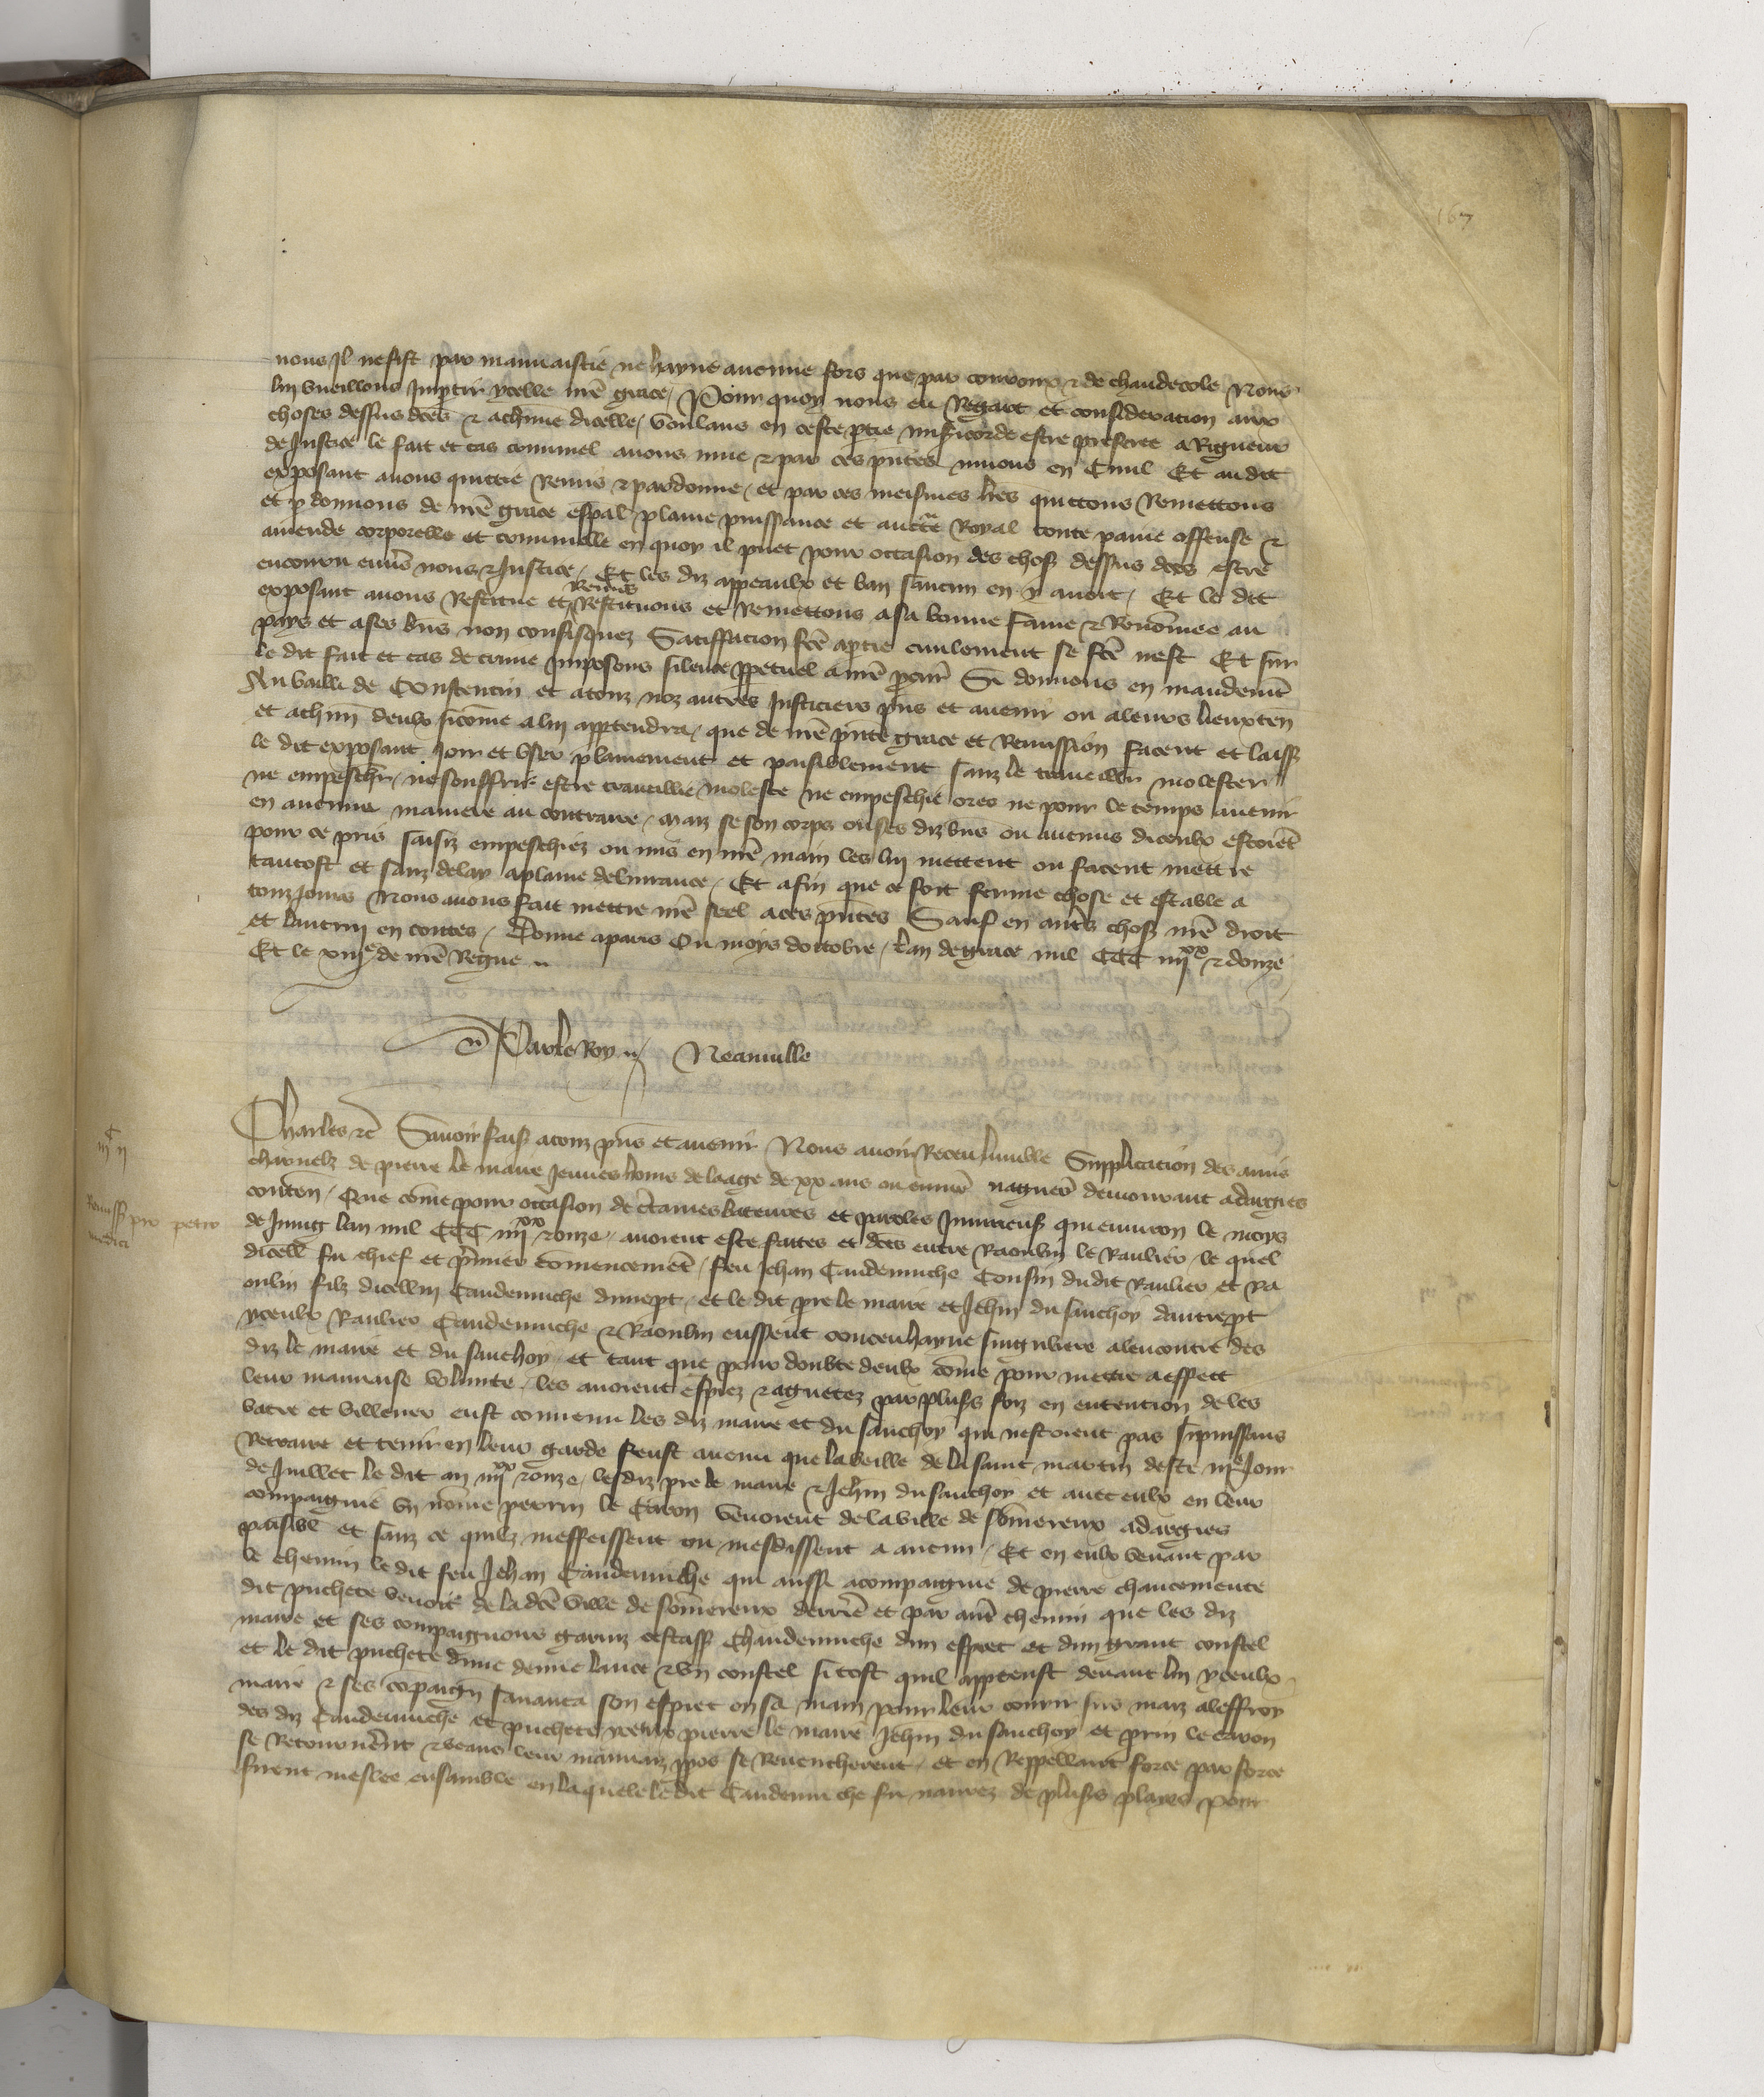 167
nous Il ne fist par mauvaistie ne hayne aucune fors que par courroux & de chaudecole Nous
lui vueillons Impartir ycelle nre grace / Pour quoy nous eu Regart et consideration aux
choses dessus dces & a chune dicelle / voulans en ceste ptie misericorde estre preferee a Rigueur
de Justice le fait et cas criminel avons mue & par ces pntes muons en Civil Et au dit
exposant avons quittie Remis & pardonne / et par ces meismes lres quittons Remettons
et pdonnons de nre grace espal plaine puissance et auctte Royal toute paine offense &
amende corporelle et criminelle en quoy il puet pour occasion des chos dessus dces estre
encouru envers nous & Justice / Et les diz appeaulx et ban saucun en y avoit / Et le dit
Remis
exposant avons Restitue et Restituons et Remettons a sa bonne fame & Renommee au
pays et a ses bns non confisquez Satiffacion fce a ptie civilement se fce nest Et sur
le dit fait et cas de crime Imposons silence ppetuel a nre pcur Si donnons en mandemt
Au bailli de Constentin et a touz noz autres Justiciers pns et avenir ou a leurs lieuxten
et a chun deulx sicome a lui appertendra / que de nre pnte grace et Remission facent et laiss
le dit exposant Joir et user plainement et paisiblement sanz le traveillier molester
ne empeschr / ne souffrir estre travaillie moleste ne empeschie ores ne pour le temps avenir
en aucune maniere au contraire / maiz se son corps ou ses diz bns ou aucuns diceulx estoient
pour ce pris saisiz empeschiez ou mis en nre main les lui mettent ou facent mettre
tantost et sanz delay a plaine delivrance / Et afin que ce soit ferme chose et estable a
touzjours Nous avons fait mettre nre seel a ces pntes Sauf en autres chos nre droit
et lautruy en toutes / Donne a paris Ou moys doctobre / lan de grace mil CCC iiijxx & douze
Et le xiije de nre Regne
Par le Roy Neauville
Charles &c Savoir fais a touz pns et avenir Nous avoir Receu lumble Supplicacion des amis
charnelz de pierre le maire Jeunes homs de laage de xx ans ou environ nagueres demourant a dargies
conten / Que come pour occasion de ctaines bateures et paroles Injurieus qui environ le moys
de Juing lan mil CCC iiijxx & onze / avoient este faites et dces entre Raoulin le Raulier / le quel
dicell fu chief et pmier comencement / feu Jehan Caudemuche Cousin dudit Raulier et Ra
oulin filz dicellui Caudemuche dune pt / et le dit pre le maire et Jehin du sauchoy dautre pt
yceulx Raulier Caudemuche & Raoulin eussent conceu hayne singuliere a lencontre des
diz le maire et du sauchoy / et tant que pour doubte deulx come pour mettre a effect
leur mauvaise volunte / les avoient espiez & aguetez par plusrs foiz en entention de les
batre et villener eust convenu les diz maire et du sauchoy qui nestoient pas si puissans
Retraire et tenir en leur garde feust avenu que la veille de la saint martin deste iije Jour
de Juillet le dit an iiijxx & onze / lesdiz pre le maire & Jehin du sauchoy et avec eulx en leur
compaignie un nomme perrin le Caron venoient de la ville de somereux a dargies
paisibl et sanz ce quilz meffeissent ou mesdissent a aucun / Et en eulx venant par
le chemin le dit feu Jehan Caudemuche qui aussi acompaignie de pierre chaucemente
dit puchete venoit de la dce ville de somereux derrere et par autre chemin que les diz
maire et ses compaignons garniz cestass Chaudemuche dun espiet et dun grant coustel
et le dit puchete dune demie lance & un coustel si tost quil apperceust devant lui yceulx
maire & ses compaign savanca son espiet en sa main pour leur courir sus maiz a leffroy
des diz Caudemuche et puchete yceulx pierre le maire Jehin du sauchoy et prin le caron
se Retournerent & veans leur mauvaiz ppos se Revencherent / et en Reppellant force par force
furent meslee ensamble en laquele le dit Caudemuche fu navrez de plusrs playes pour
Remiss pro petro
medici